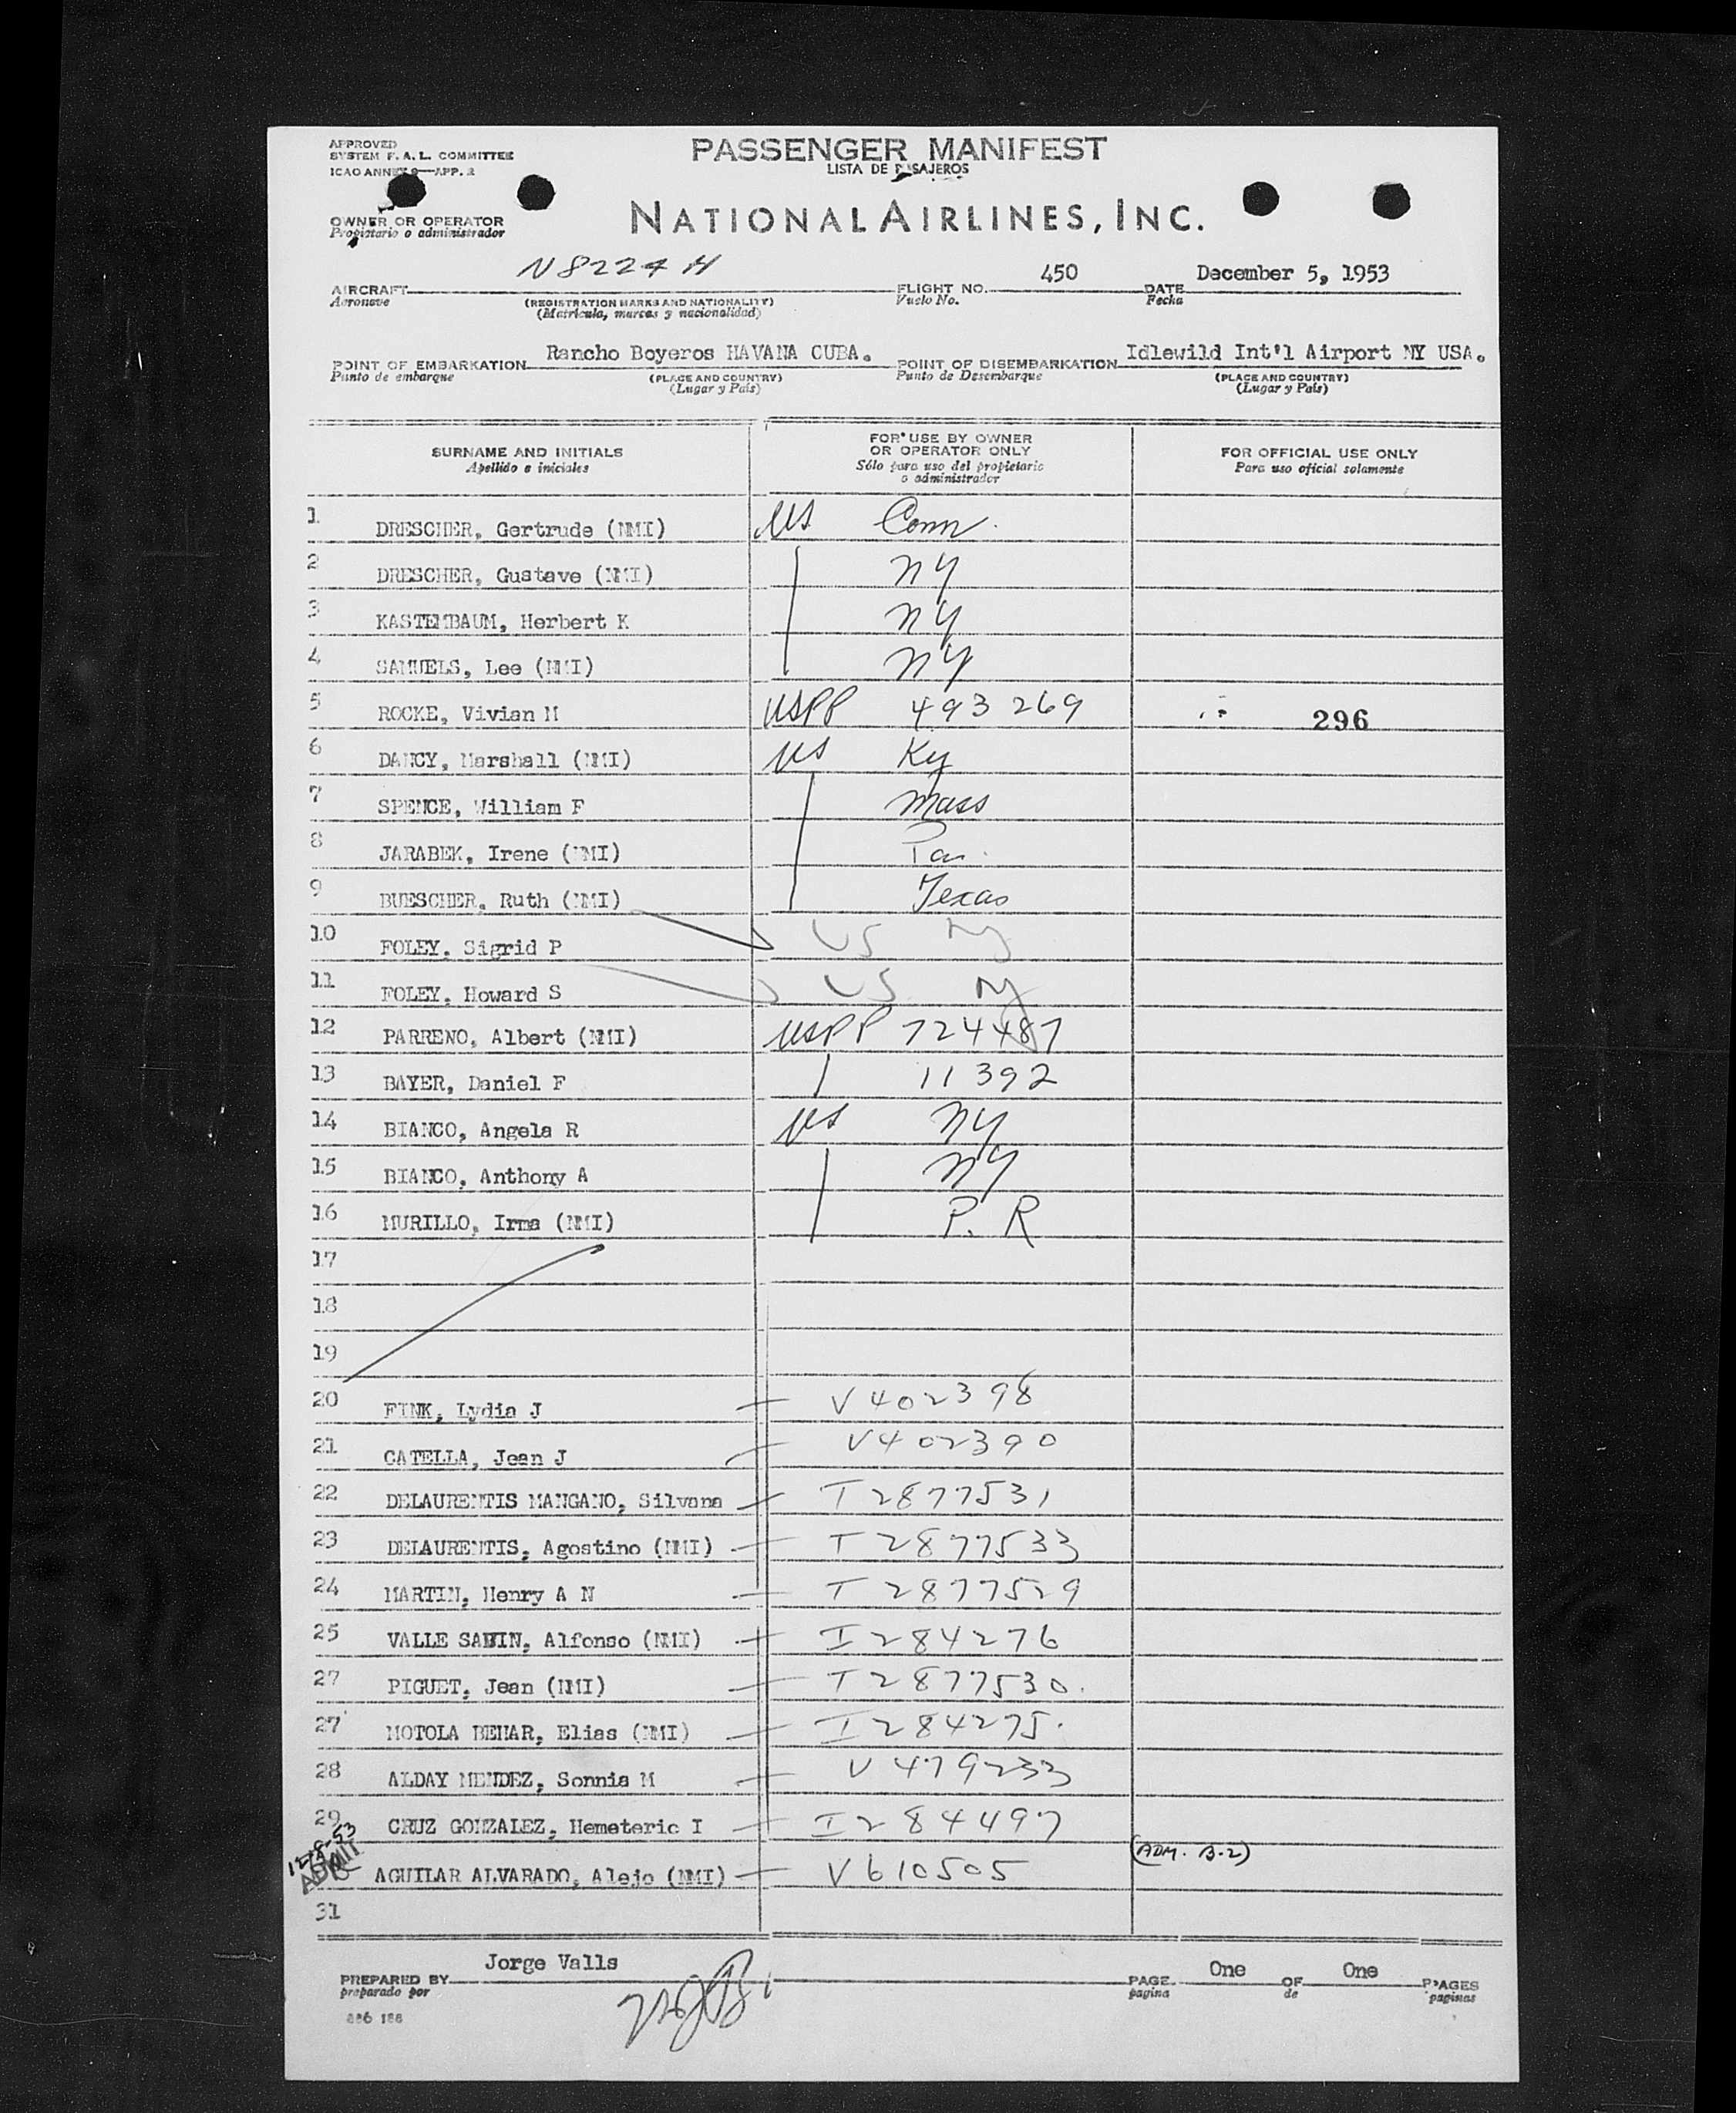 APPROVED
SYSTEM F. A. L. COMMITTEE
ICAO ANNEX 9—APP. 2
PASSENGER MANIFEST
LISTA DE PASAJEROS
OWNER OR OPERATOR
Propietario o administrador
NATIONAL AIRLINES, INC.
AIRCRAFT N8224H FLIGHT NO. 450 DATE December 5, 1953
Aeronave (REGISTRATION MARKS AND NATIONALITY) Vuelo No. Fecha
(Matrícula, marcas y nacionalidad)
POINT OF EMBARKATION Rancho Boyeros HAVANA CUBA. POINT OF DISEMBARKATION Idlewild Int'l Airport NY USA.
Punto de embarque (PLACE AND COUNTRY) Punto de Desembarque (PLACE AND COUNTRY)
(Lugar y País) (Lugar y País)
SURNAME AND INITIALS
Apellido e iniciales
FOR USE BY OWNER
OR OPERATOR ONLY
Sólo para uso del propietario
o administrador
FOR OFFICIAL USE ONLY
Para uso oficial solamente
1 DRESCHER, Gertrude (NMI) US Conn.
2 DRESCHER, Gustave (NMI) NY
3 KASTENBAUM, Herbert K NY
4 SAMUELS, Lee (NMI) NY
5 ROCKE, Vivian M USPP 493269 296
6 DANCY, Marshall (NMI) US Ky
7 SPENCE, William F Mass
8 JARABEK, Irene (NMI) Pa.
9 BUESCHER, Ruth (NMI) Texas
10 FOLEY, Sigrid P US NJ
11 FOLEY, Howard S US NJ
12 PARRENO, Albert (NMI) USPP 724487
13 BAYER, Daniel F 11392
14 BIANCO, Angela R US NY
15 BIANCO, Anthony A NY
16 MURILLO, Irma (NMI) P.R
17
18
19
20 FINK, Lydia J V402398
21 CATELLA, Jean J V402390
22 DELAURENTIS MANGANO, Silvana I2877531
23 DELAURENTIS, Agostino (NMI) I2877533
24 MARTIN, Henry A N I2877529
25 VALLE SABIN, Alfonso (NMI) I284276
27 PIGUET, Jean (NMI) I2877530.
27 MOTOLA BEHAR, Elias (NMI) I284275.
28 ALDAY MENDEZ, Sonnia M V479233
29 CRUZ GONZALEZ, Hemeteric I I284497
12-8-53
ADMIT
AGUILAR ALVARADO, Alejo (NMI) V610505 (ADM. B-2)
31
PREPARED BY Jorge Valls PAGE One OF One PAGES
preparado por pagina de paginas